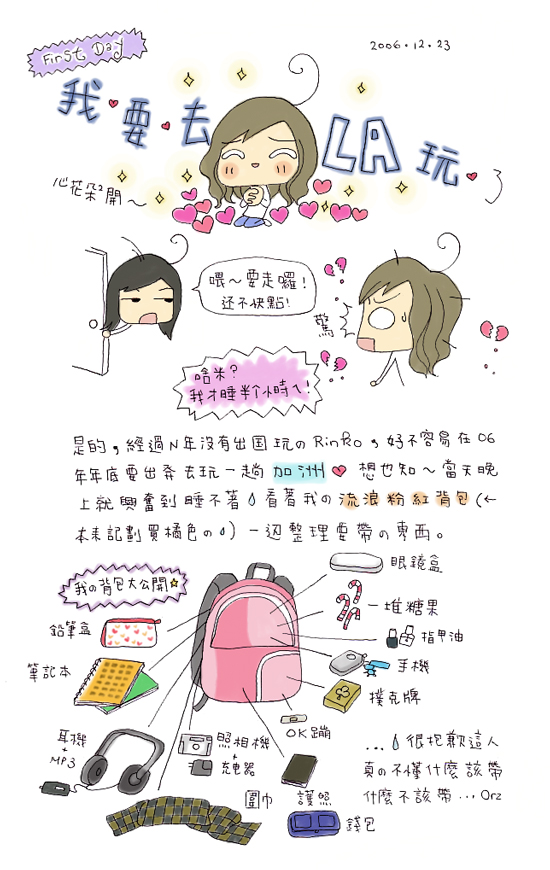 First Day
2006.12.23
我要去LA玩
心花朵朵開～
喂～要走囉!
还不快點!
驚
啥米?
我才睡半个小時ㄟ!
是的,經過N年沒有出国玩のRinRo,好不容易在06
年年底要出発去玩一趟加洲 想也知～當天晚
上就興奮到睡不著 看著我の流浪粉紅背包(←
本来記劃買橘色の)一边整理要帶の東西。
我の背包大公開
眼鏡盒
一堆糖果
鉛筆盒
指甲油
筆記本
手機
撲克牌
OK蹦
耳機
+
MP3
照相機
+
充电器
圍巾
護照
錢包
...很抱歉這人
真の不懂什麼該帶
什麼不該帶...Orz